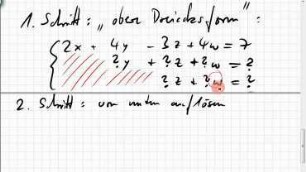 1. Schritt: „obere Dreiecksform":
2x + 4y - 3z + 4w = 7
?y + ?z + ?w = ?
?z + ?w = ?
2. Schritt: von unten auflösen